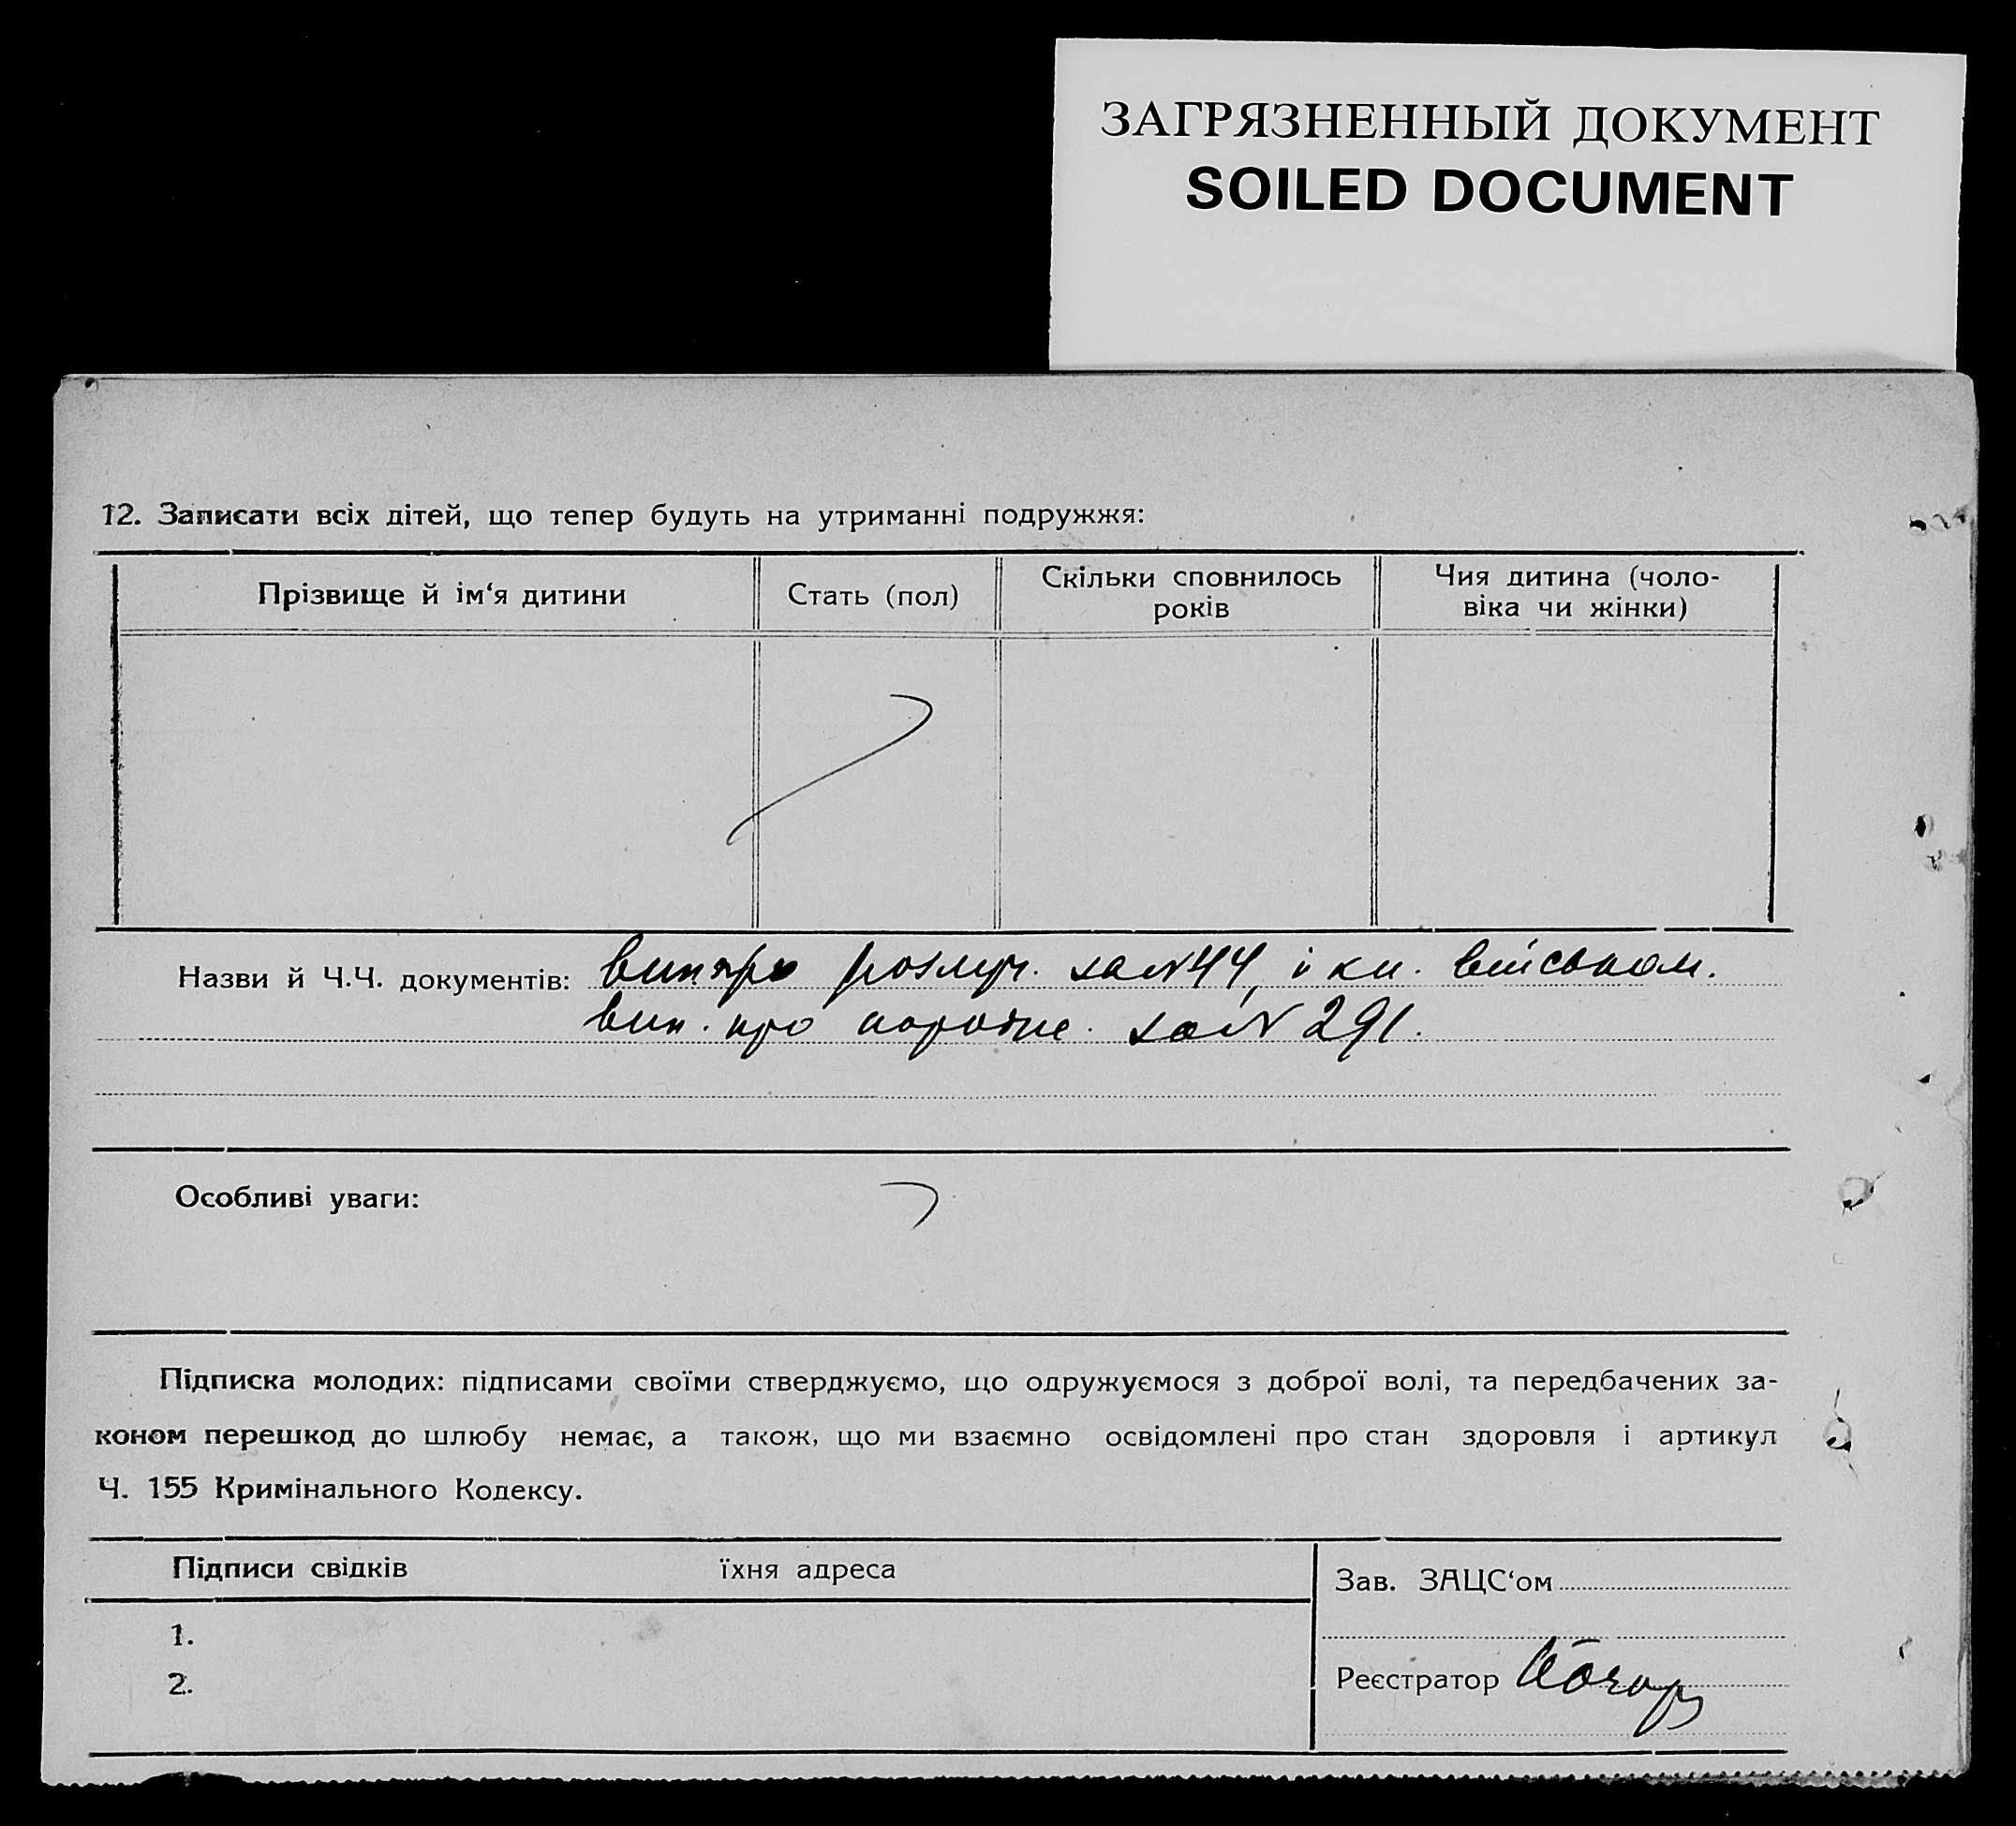 ЗАГРЯЗНЕННЫЙ ДОКУМЕНТ
SOILED DOCUMENT
12. Записати всіх дітей, що тепер будуть на утриманні подружжя:
Прізвище й ім‘я дитини
Стать (пол)
Скільки сповнилось
років
Чия дитина (чоло-
віка чи жінки)
Назви й Ч.Ч. документів: розлуч. за № 44, і кн. військом.
вип. про за № 291.
Особливі уваги:
Підписка молодих: підписами своїми стверджуємо, що одружуємося з доброї волі, та передбачених за-
коном перешкод до шлюбу немає, а також, що ми взаємно освідомлені про стан здоровля і артикул
Ч. 155 Кримінального Кодексу.
Підписи свідків їхня адреса
1.
2.
Зав. ЗАЦС‘ом
Реєстратор